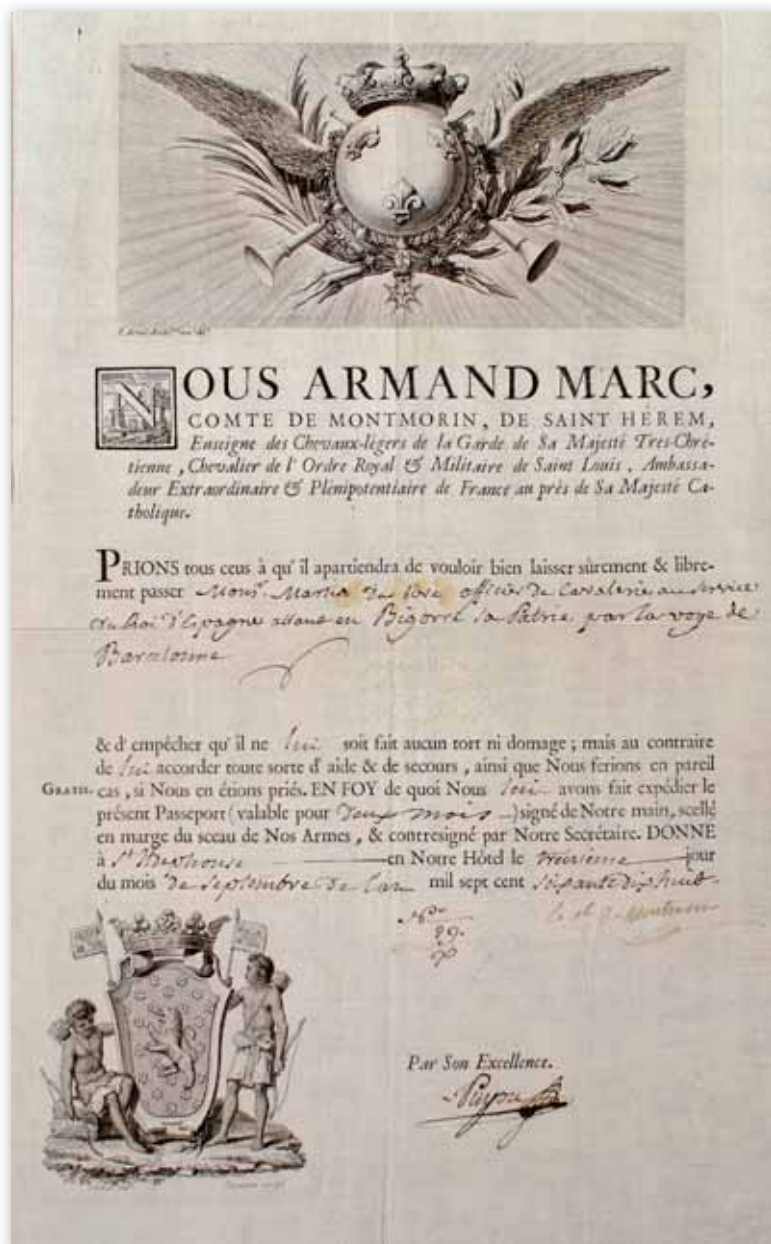 NOUS ARMAND MARC,
COMTE DE MONTMORIN, DE SAINT HÉREM,
Enseigne des Chevaux-légers de la Garde de Sa Majesté Tres-Chré-
tienne, Chevalier de l'Ordre Royal & Militaire de Saint Louis, Ambassa-
deur Extraordinaire & Plénipotentiaire de France au près de Sa Majesté Ca-
tholique.
PRIONS tous ceus à qu'il apartiendra de vouloir bien laisser sûrement & libre-
ment passer Monsr. officier de Cavalerie au service
du Roi d'Espagne allant en Bigorre sa Patrie par la voye de
Barcelonne
& d'empêcher qu'il ne lui soit fait aucun tort ni domage; mais au contraire
de lui accorder toute sorte d'aide & de secours, ainsi que Nous ferions en pareil
GRATIS. cas, si Nous en étions priés. EN FOY de quoi Nous lui avons fait expédier le
présent Passeport (valable pour deux mois) signé de Notre main, scellé
en marge du sceau de Nos Armes, & contresigné par Notre Secrétaire. DONNE
à St en Notre Hôtel le jour
du mois de Septembre de l'an mil sept cent
29.
Par Son Excellence.